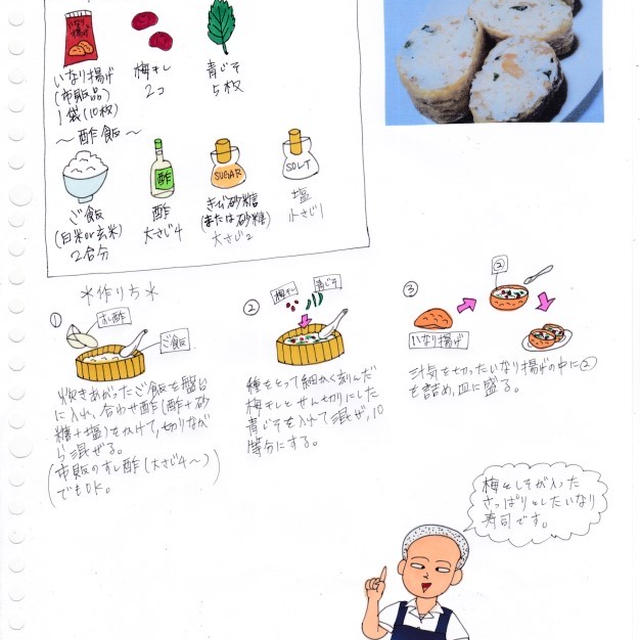 いなり揚げ
いなり揚げ
(市販品)
1袋(10枚)
梅干し
2コ
青じそ
5枚
～酢飯～
ご飯
(白米or玄米)
2合分
酢
酢
大さじ4
SUGAR
きび砂糖
(または砂糖)
大さじ2
SOLT
塩
小さじ1
*作り方*
①
すし酢
ご飯
炊きあがったご飯を盤台
に入れ、合わせ酢(酢+砂
糖+塩)をかけて、切りなが
ら混ぜる。
(市販のすし酢(大さじ4～)
でもOK。)
②
梅干し
青じそ
種をとって細かく刻んだ
梅干しとせん切りにした
青じそを入れて混ぜ、10
等分にする。
③
いなり揚げ
②
汁気を切ったいなり揚げの中に②
を詰め、皿に盛る。
梅としそが入った
さっぱりとしたいなり
寿司です。